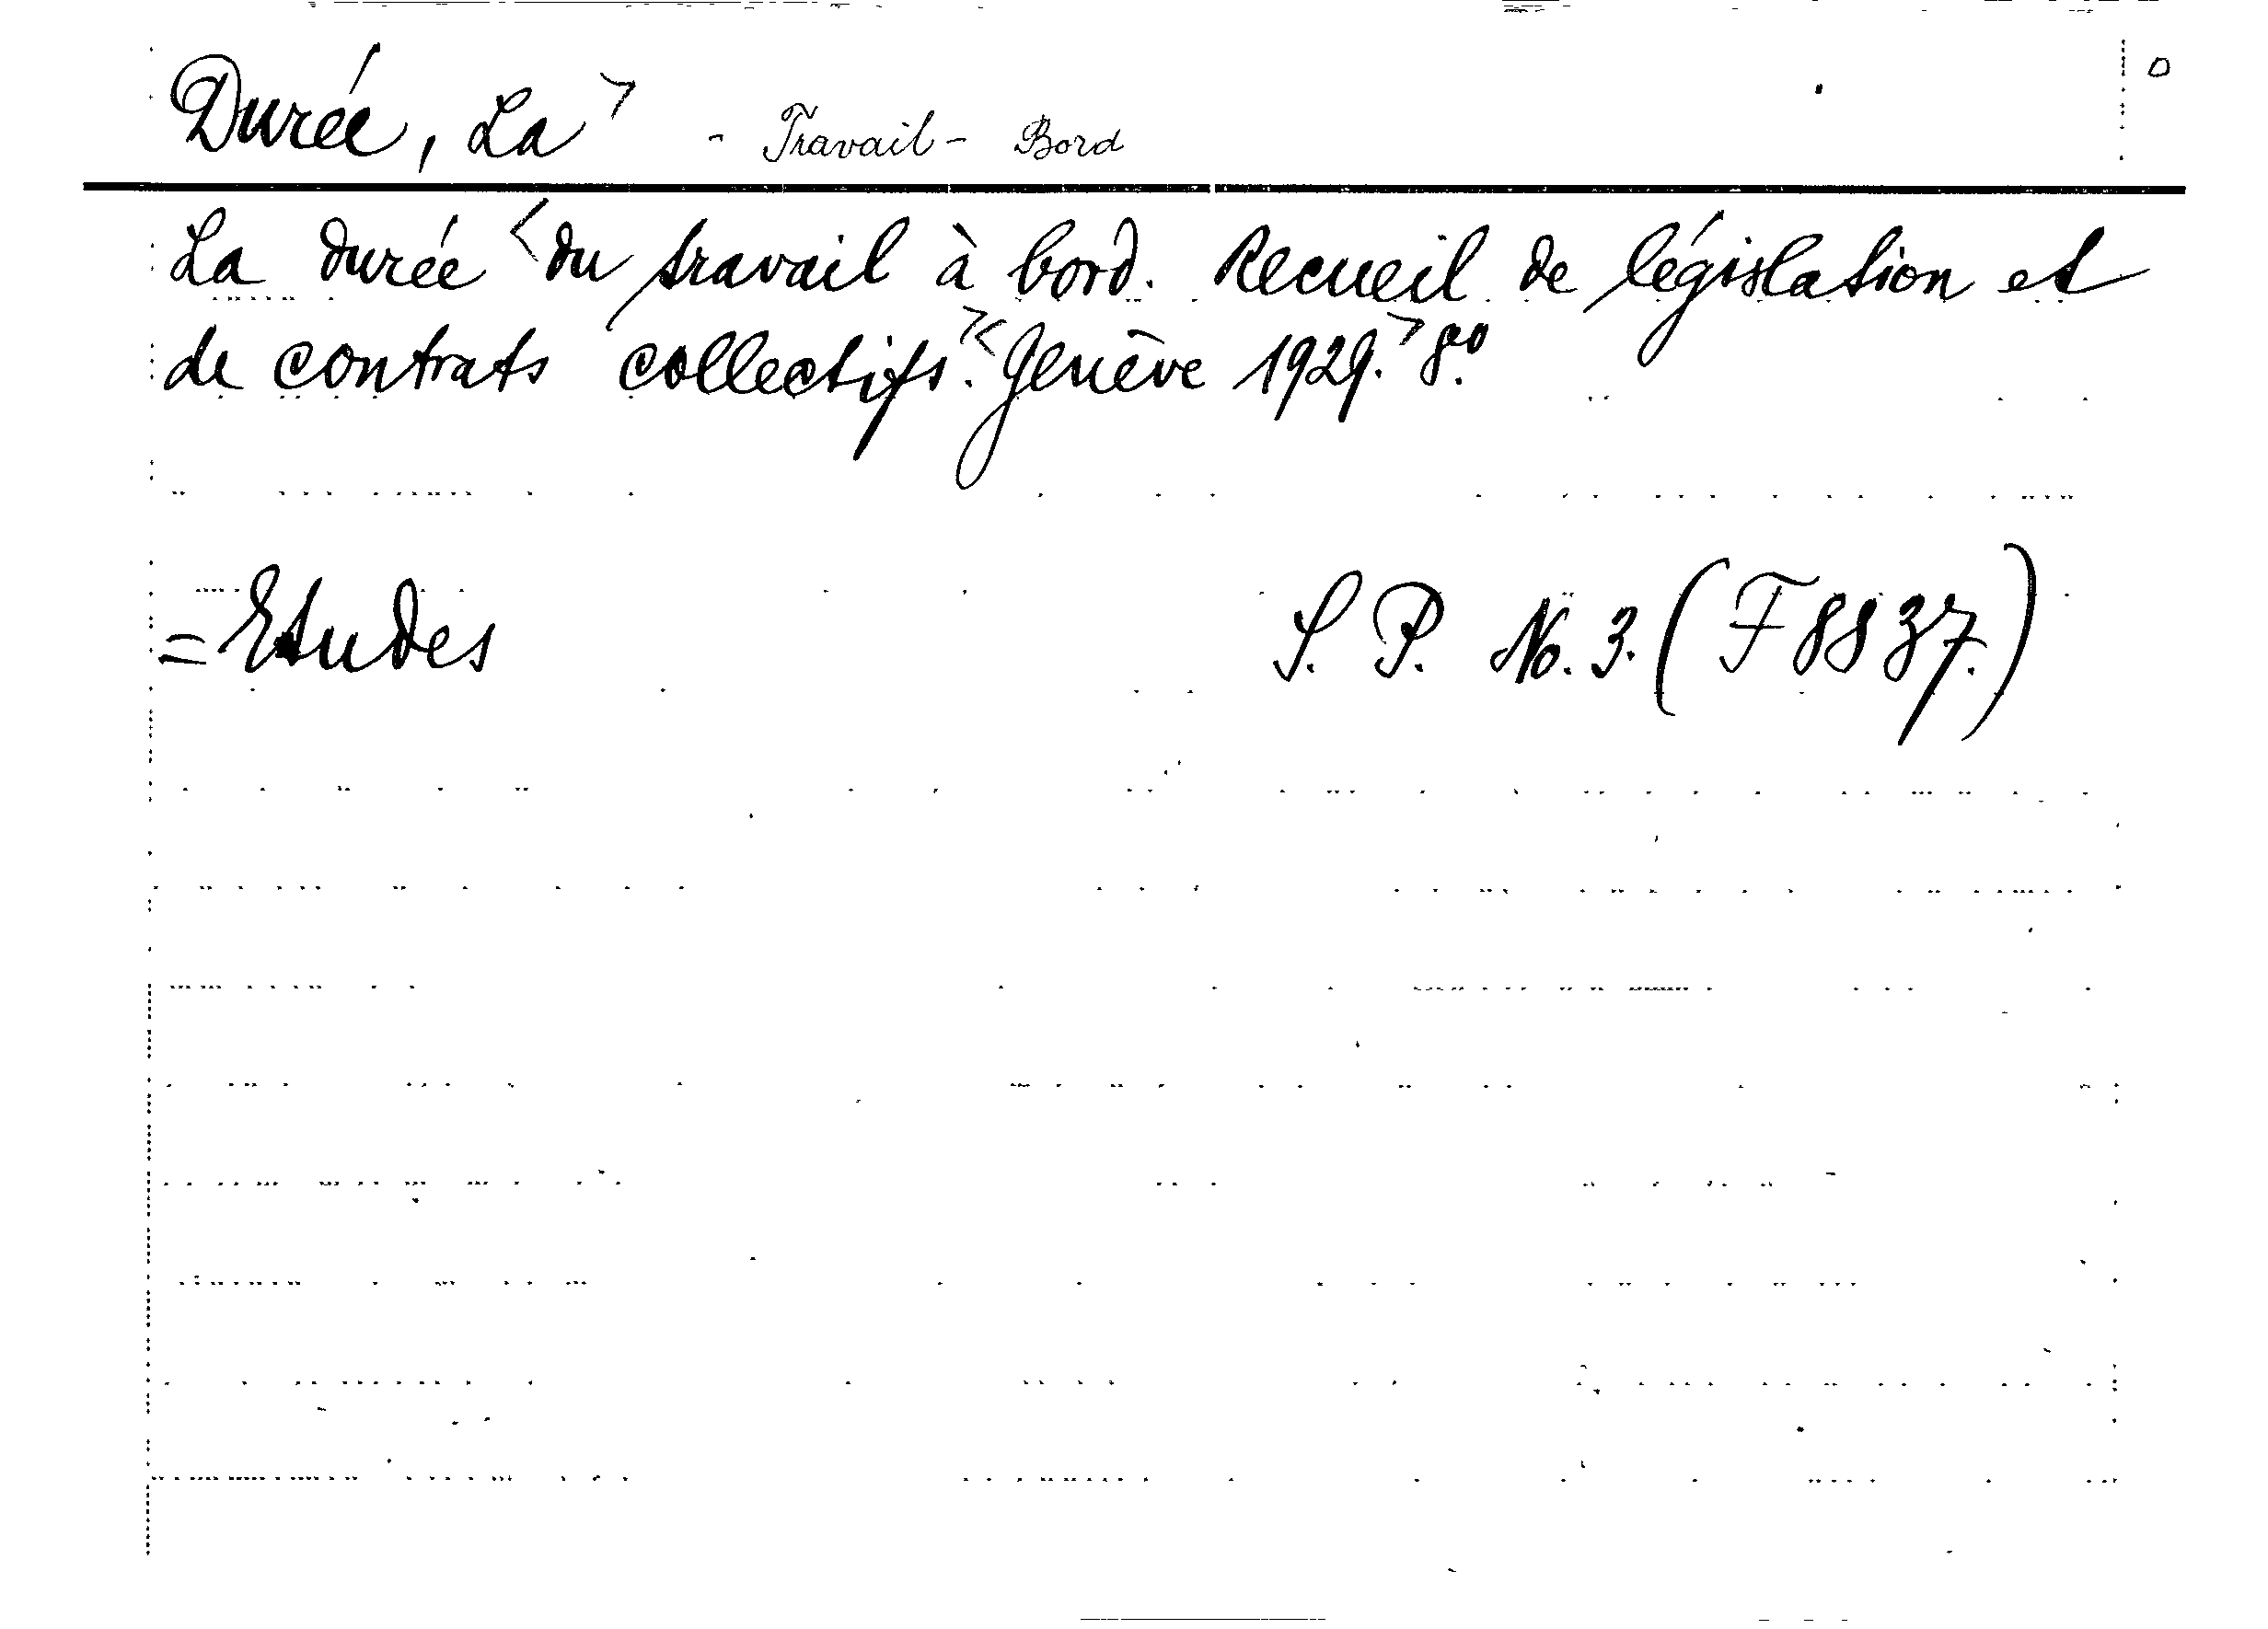 Durée, La > - Travail - Bord
La durée < du travail à bord. Recueil de législation et
de contrats collectifs. > < Genève 1929. > 8vo.
= Etudes S. P. No. 3. (F 8837.)